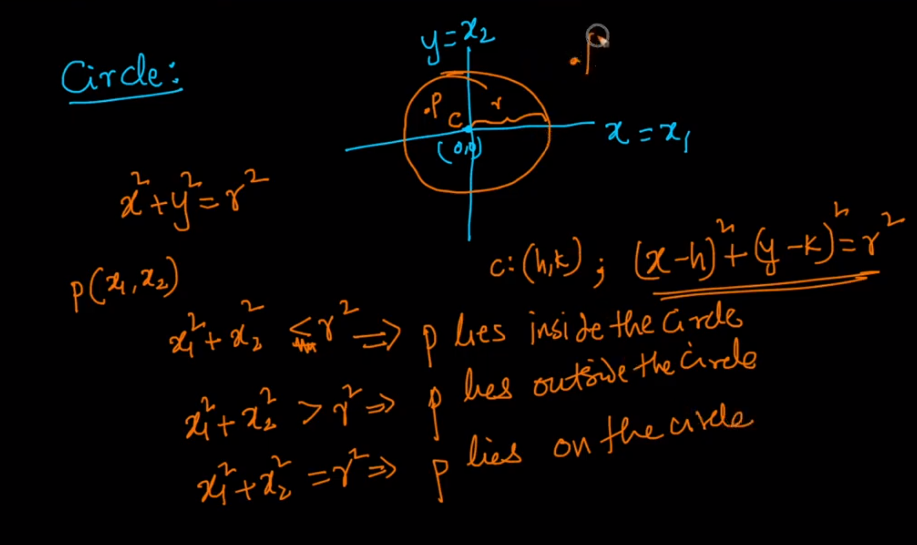 y = x₂
Circle:
.P
C
r
.P
(0,0)
x = x₁
x² + y² = r²
C: (h,k) ; (x-h)² + (y-k)² = r²
P(x₁, x₂)
x₁² + x₂² < r² ⇒ P lies inside the Circle
x₁² + x₂² > r² ⇒ P lies outside the Circle
x₁² + x₂² = r² ⇒ P lies on the circle